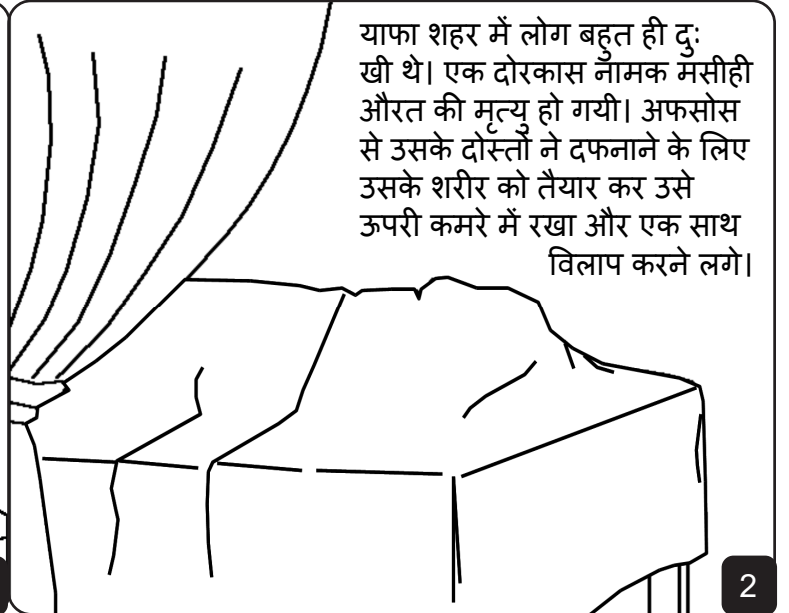 याफा शहर में लोग बहुत ही दुः
खी थे। एक दोरकास नामक मसीही
औरत की मृत्यु हो गयी। अफसोस
से उसके दोस्तों ने दफनाने के लिए
उसके शरीर को तैयार कर उसे
ऊपरी कमरे में रखा और एक साथ
विलाप करने लगे।
2